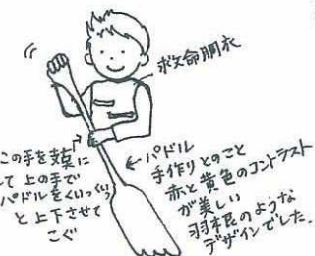 救命胴衣
この手を支点に
して上の手で
パドルをくいっくいっ
と上下させて
こぐ
パドル
手作りとのこと
赤と黄色のコントラスト
が美しい
羽根のような
デザインでした。